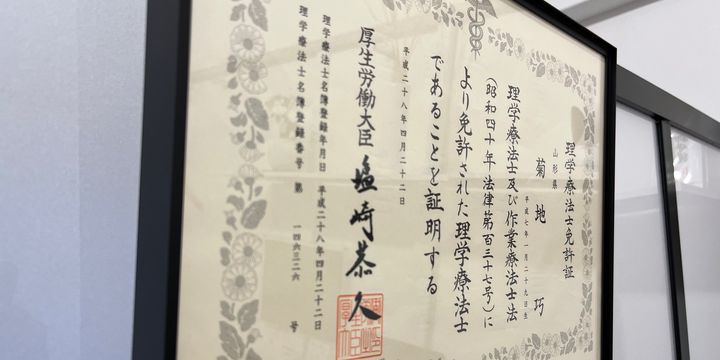 理学療法士免許証
山形県
菊地 巧
平成七年一月二十九日生
理学療法士及び作業療法士法
(昭和四十年 法律第百三十七号)に
より免許された理学療法士
であることを証明する
平成二十八年四月二十二日
厚生労働大臣 塩崎恭久
理学療法士名簿登録年月日 平成二十八年四月二十二日
理学療法士名簿登録番号 第 一四六三二六 号